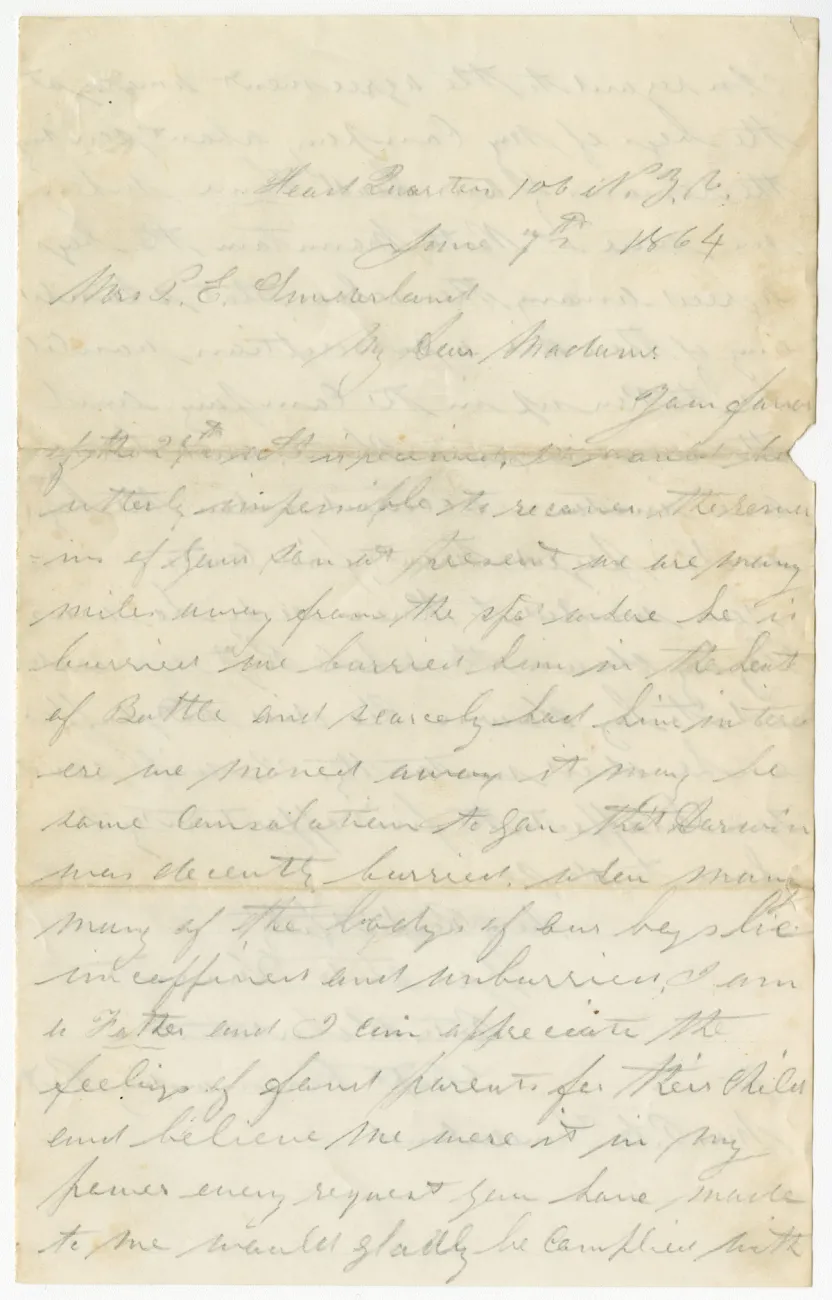 Head Quarters 106 N.Y.V.
June 7th 1864
Mrs P. E.
My Dear Madam
Your favor
of the 24th is received, it would be
utterly impossible to recover the rema
=ins of your son at present we are many
miles away from the spot where he is
burried we burried him in the heat
of Battle and scarcely had him inter
ere we moved away it may be
some Consolation to you that Darwin
was decently burried. when many
many of the bodys of our boys lie
uncoffined and unburried, I am
a Father and I can appreciate the
feelings of fond parents for their child
and believe me were it in my
power every request you have made
to me would gladly be complied with